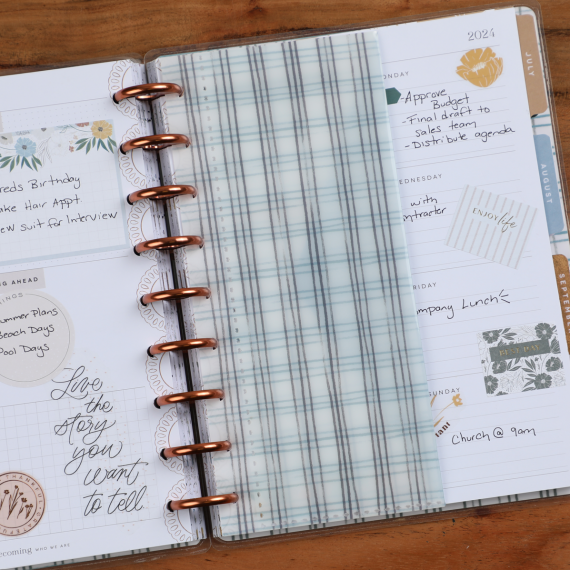 reds Birthday
ake Hair Appt
ew suit for Interview
G AHEAD
INGS
ummer Plans
Beach Days
Pool Days
Live
the
story
you
want
to tell
ecoming WHO WE ARE
2024
ONDAY
-Approve
Budget
-Final draft to
sales team
-Distribute agenda
EDNESDAY
with
ntractor
ENJOY life
RIDAY
mpany Lunch
UNDAY
Church @ 9am
JULY
AUGUST
SEPTEMBER